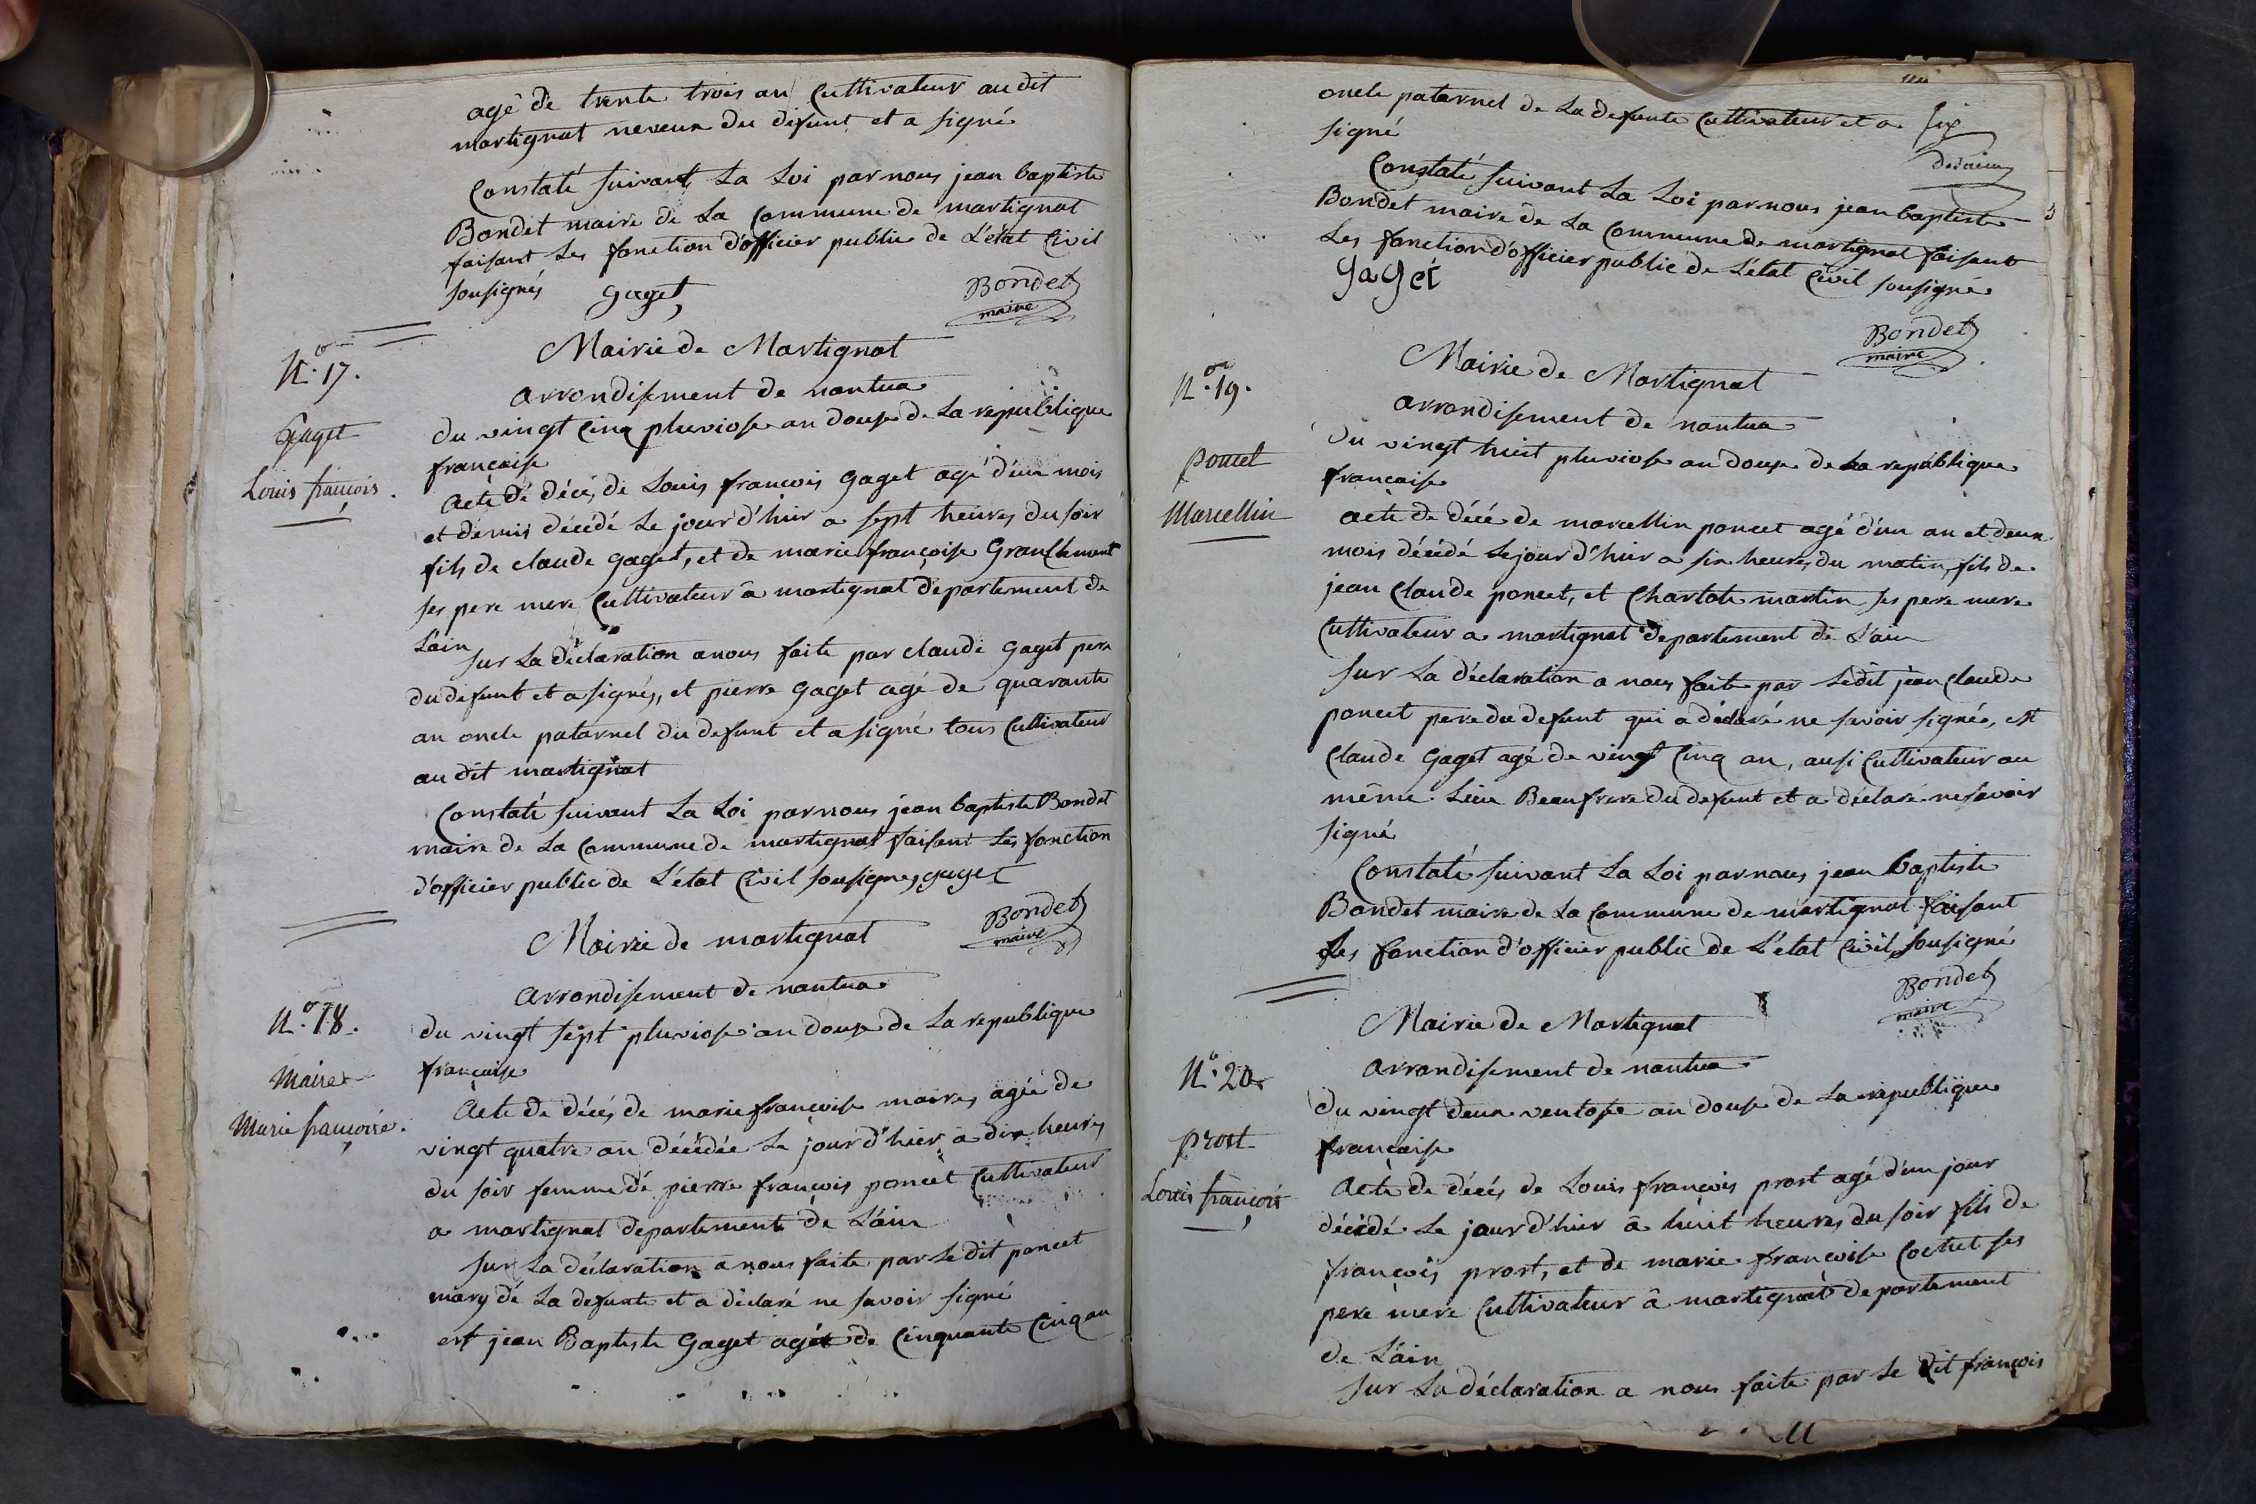 agé de trente trois an Cultivateur au dit
martignat neveux du defunt et a signé
Constaté suivant La Loi par nous jean baptiste
Bondet maire de La Commune de martignat
faisant Les fonction d'officier public de L'état Civil
sousignés gaget
Bondet
maire
Mairie de Martignat
arrondisement de nantua
N.o 17.
Gaget
Louis françois.
du vingt Cinq pluviose an douse de La republique
française
Acte de décé, de Louis françois gaget agé d'un mois
et demis décédé Le jour d'hier a sept heures du soir
fils de claude gaget, et de marie françoise Granclement
ses pere mere Cultivateur â martignat departement de
L'ain
sur La déclaration a nous faite par claude gaget pere
du defunt et a signés, et pierre gaget agé de quarante
an oncle paternel du defunt et a signé tous Cultivateur
au dit martignat
Constaté suivant La Loi par nous jean baptiste Bondet
maire de La Commune de martignat faisant Les fonction
d'officier public de L'état Civil sousignés gaget
Bondet
maire
Mairie de martignat
arrondisement de nantua
N.o 18.
Maire
Marie françoise.
du vingt sept pluviose an douse de La republique
française
Acte de décés de marie françoise maires agée de
vingt quatre an décédée Le jour d'hier â dix heures
du soir femme de pierre françois poncet Cultivateur
a martignat departement de L'ain
sur La déclaration a nous faite par Le dit poncet
mary de La defunte et a déclaré ne savoir signé
est jean Baptiste gaget agée de Cinquante Cinq an
oncle paternel de La defunte Cultivateur et a
signé
Constaté suivant La Loi par nous jean baptiste
Bondet maire de La Commune de martignat faisant
Les fonction d'officier public de L'état Civil sousigné
gaget
Bondet
maire
Mairie de Martignat
arrondisement de nantua
N.o 19.
poncet
Marcellin
Du vingt huit pluviose an douse de La republique
française
acte de décé de marcellin poncet agé d'un an et deux
mois décédé Le jour d'hier a six heures du matin, fils de
jean Claude poncet, et Charlote martin ses pere mere
Cultivateur a martignat departement de L'ain
sur La déclaration a nous faite par Ledit jean Claude
poncet pere du defunt qui a déclaré ne savoir signée, est
Claude gaget agé de vingt Cinq an, ausi Cultivateur au
même Lieu Beaufrere du defunt et a déclaré ne savoir
signé
Constaté suivant La Loi par nous jean baptiste
Bondet maire de La Commune de martignat faisant
Les fonction d'officier public de L'état Civil sousigné
Bondet
maire
Mairie de Martignat
arrondisement de nantua
N.o 20.
prost
Louis françois
du vingt deux ventose an douse de La republique
française
Acte de décés de Louis françois prost agé d'un jour
décédé Le jour d'hier â huit heures du soir fils de
françois prost, et de marie françoise Cochet ses
pere mere Cultivateur â martignat departement
de L'ain
sur La déclaration a nous faite par Le dit françois